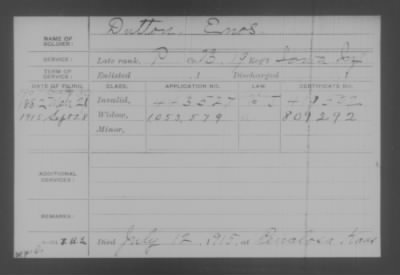 NAME OF SOLDIER: Dutton, Enos
SERVICE: Late rank, P Co. B, 19 Reg't Iowa Inf
TERM OF SERVICE: Enlisted , 1 Discharged , 1
DATE OF FILING. CLASS. APPLICATION NO. LAW. CERTIFICATE NO.
1882 Invalid, 443527
1915 Sept 28 Widow, 1053,579 809292
Minor,
ADDITIONAL SERVICES:
REMARKS:
Died July 12, 1915, at Penalosa Kans